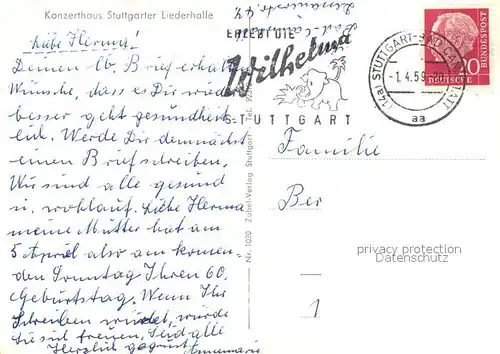 Konzerthaus Stuttgarter Liederhalle
Liebe Herma!
Deinen lb. Brief erhalten
Wünsche, dass es Dir wieder
besser geht gesundheit-
lich. Werde Dir demnächst
einen Brief schreiben.
Wir sind alle gesund
u. wohlauf. Liebe Herma
meine Mutter hat am
5 April also am kommen-
den Sonntag Ihren 60.
Geburtstag. Wenn Ihr
Schreiben würdet, würde
sie sich freuen, Seid alle
Herzlich gegrüsst Annemarie
Nr. 1020 Zobel-Verlag Stuttgart Tel.
Bad
ERLEBT DIE
Wilhelma
STUTTGART
(14a) STUTTGART-BAD CANNSTATT
-1.4.59
aa
20
DEUTSCHE BUNDESPOST
Familie
Ber
privacy protection
Datenschutz
1